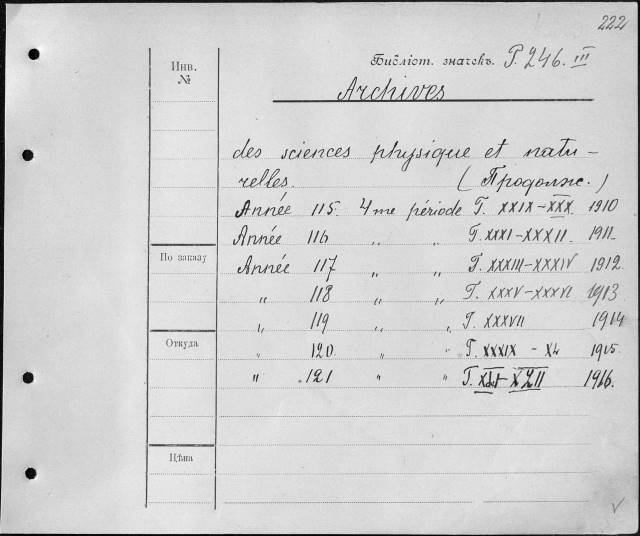 222
Инв. №
Библіот. значекъ. P. 246. III
Archives
des sciences physique et natu-
relles. (Продолж.)
Année 115. 4me période T. XXIX-XXX 1910
Année 116 " " T. XXXI-XXXII 1911.
По заказу
Année 117 " " T. XXXIII-XXXIV 1912.
" 118 " " T. XXXV-XXXVI 1913
" 119 " " T. XXXVII 1914
Откуда
" 120. " " T. XXXIX - XL 1915.
" 121 " " T. XLI-XLII 1916.
Цѣна